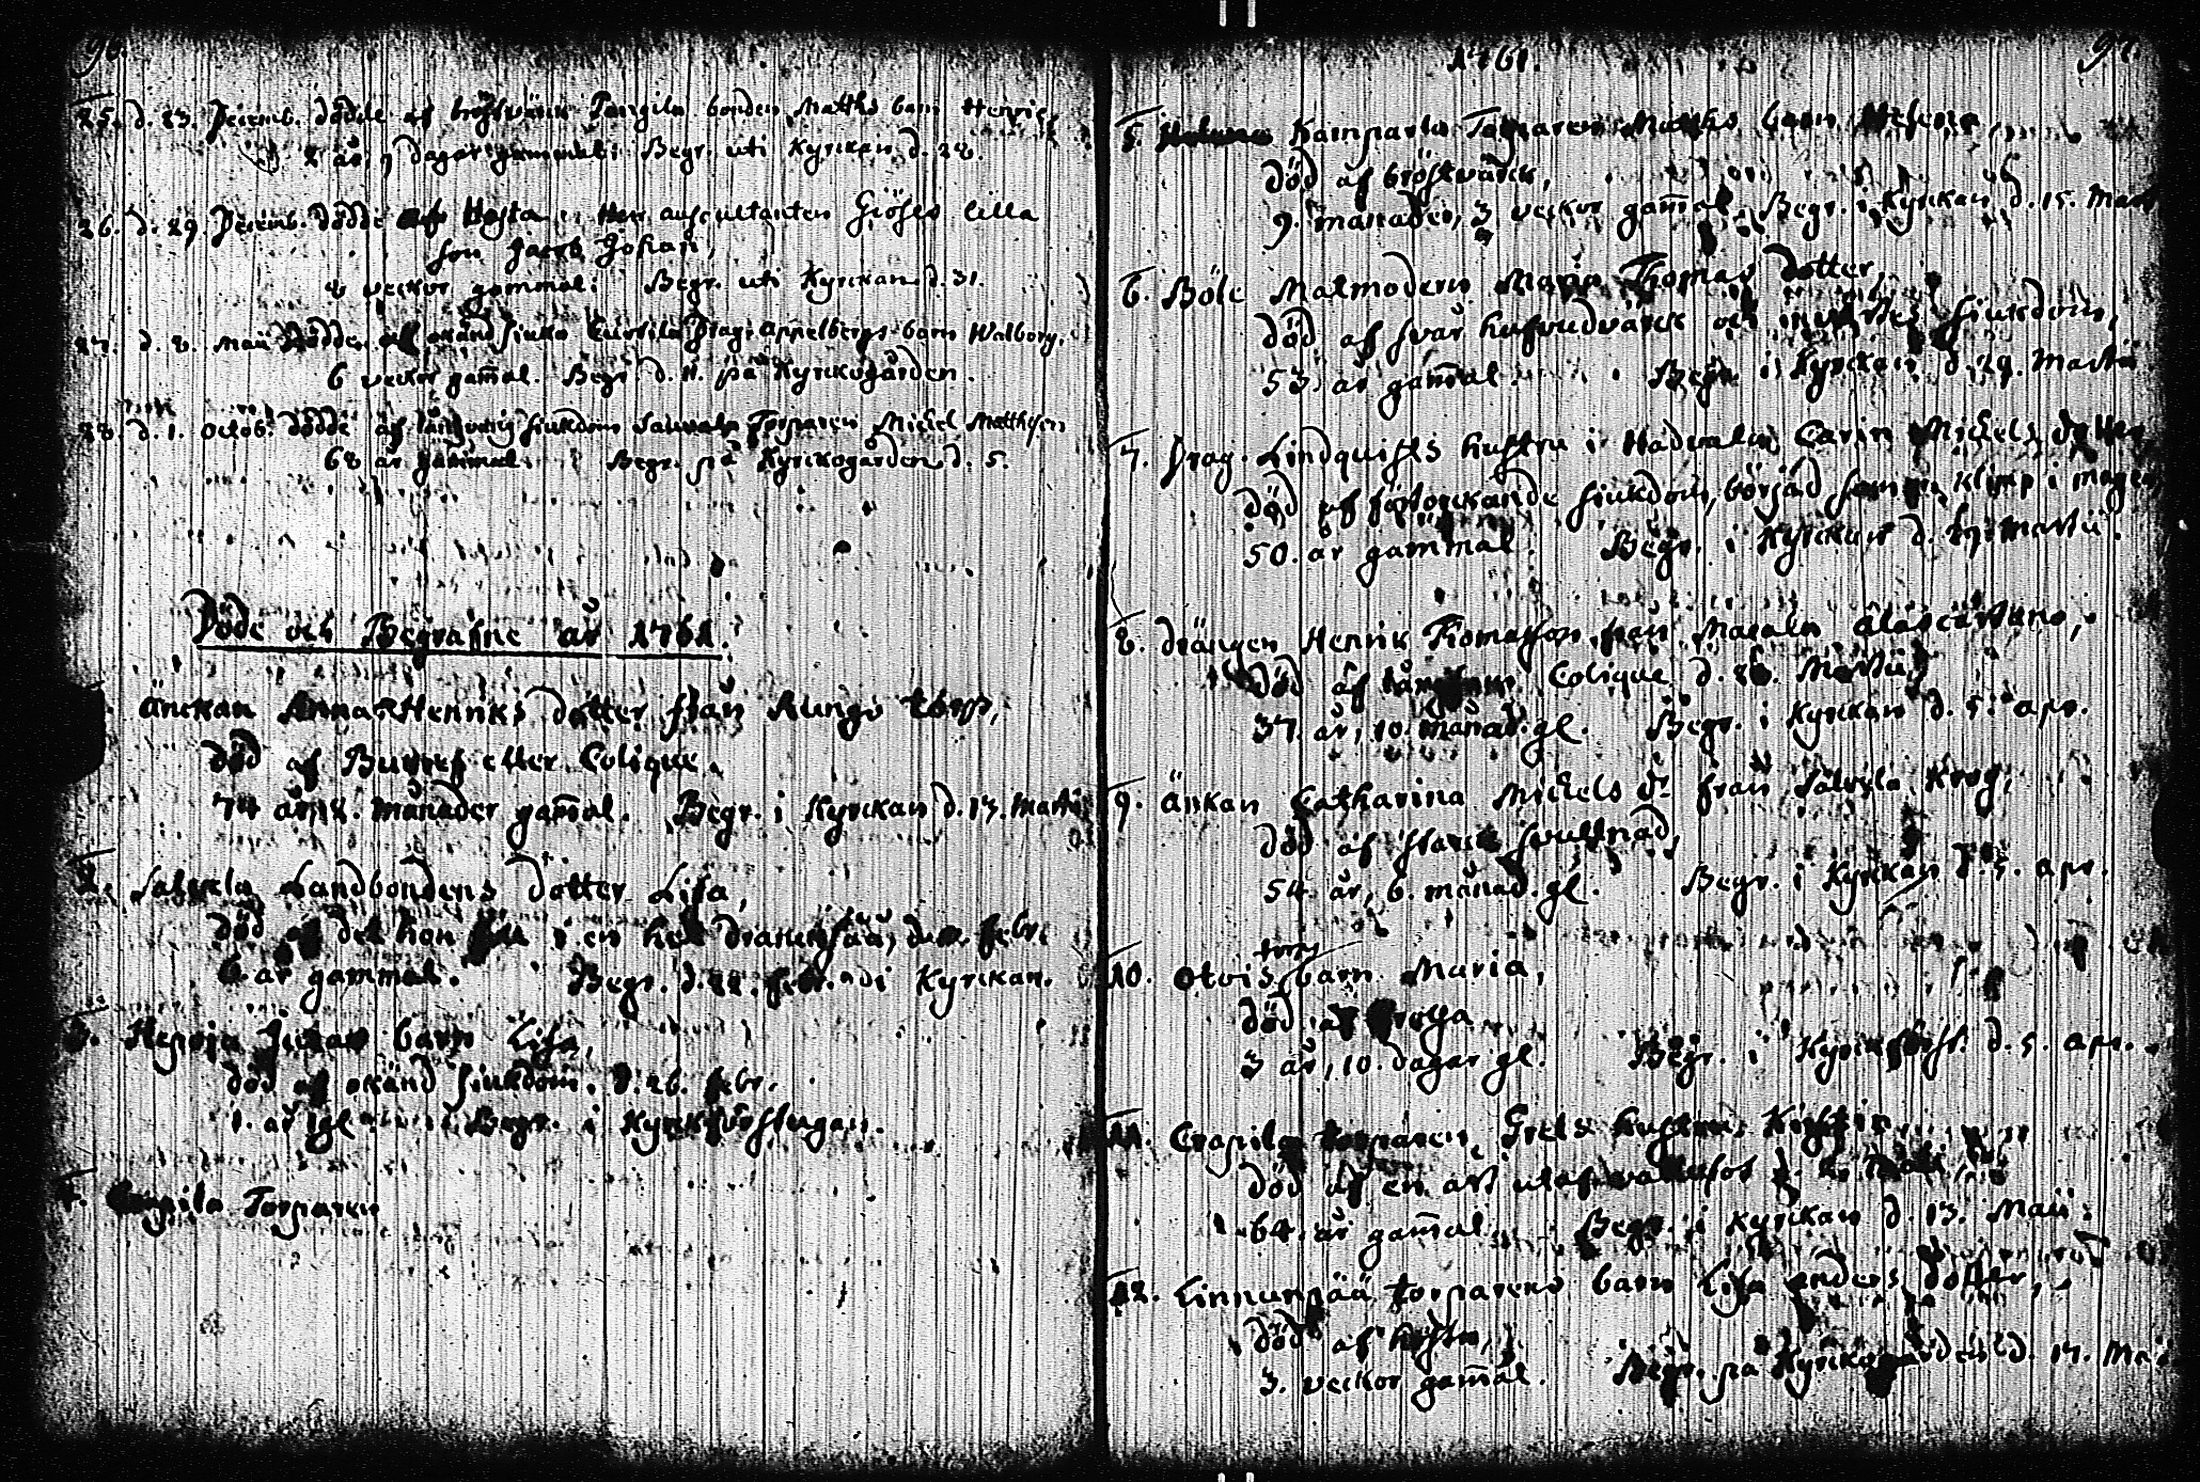 96.
25. d. 23. Decemb. dödde af bröstvärck Pargila bonden Matths barn Henric,
2 år, 9 dagar gammal: Begr. uti Kyrckan d. 28.
26. d. 29. Decemb. dödde af Hosta Herr auscultanten Giöses lilla
son Jacob Johan,
8 veckor gammal: Begr. uti Kyrckan d. 31.
27. d. 8. Maii dödde af okänd siuka Drag. Appelbergs barn Walborg,
6 veckor gam̄al. Begr. d. 11. på Kyrckogården.
28. d. 1. Octob. dödde af långvarig siukdom Torparen Michel Matthsson
68 år gammal. Begr. på Kyrckogården d. 5.
Döde och Begrafne år 1761.
änckan Anna Henriks dotter från Kungs torp,
död af Buukref eller Colique.
74 år, 2. månader gam̄al. Begr. i Kyrckan d. 13. Martii
2. Salvela Landbondens dotter Lisa,
död af det hon i en het dranckså, d. febr.
6. år gammal. Begr. d. 22. febr. i Kyrckan.
3. barn Lisa,
död af okänd siukdom. d. 26. febr.
1. år gl. Begr. i Kyrckförstugan.
4. Crapila Torparen
1761.
97.
5. Kamparla Torparen Matths barn Helena
död af bröstvärck,
9. månader, 3 veckor gam̄al. Begr. i Kyrckan d. 15. Mart
6. Böle Malmodern Maria Thomas dotter,
död af svår hufvudvärck och invärtes siukdom,
53 år gam̄al. Begr. i Kyrckan d. 29. Martii
7. Drag. Lindquists hustru i Hadvala Carin Michels dotter
död af förtorckande siukdom, börjad som en klimp i magen,
50. år gammal. Begr. i Kyrckan d. 29. Martii.
8. drängen Henrik Thomasson från
död af Colique d. 26. Martii,
37. år, 10. månad. gl. Begr. i Kyrckan d. 5. apr.
9. änkan Catharina Michels dr från Salvela Krog,
död af starck svullnad,
54 år, 6. månad. gl. Begr. i Kyrckan d. 5. apr.
torp
10. Otvis barn Maria,
död af
3 år, 10. dagar gl. Begr. i Kyrckförst. d. 5. apr.
11. Crapila torparen Grels hustru Kirstin
död af en art utaf
64. år gam̄al. Begr. i Kyrckan d. 13. Maii.
12. Linnunpää torparens barn Lisa Anders dotter,
död af hosta,
3. veckor gam̄al. Begr. på Kyrckogården d. 17. Mai